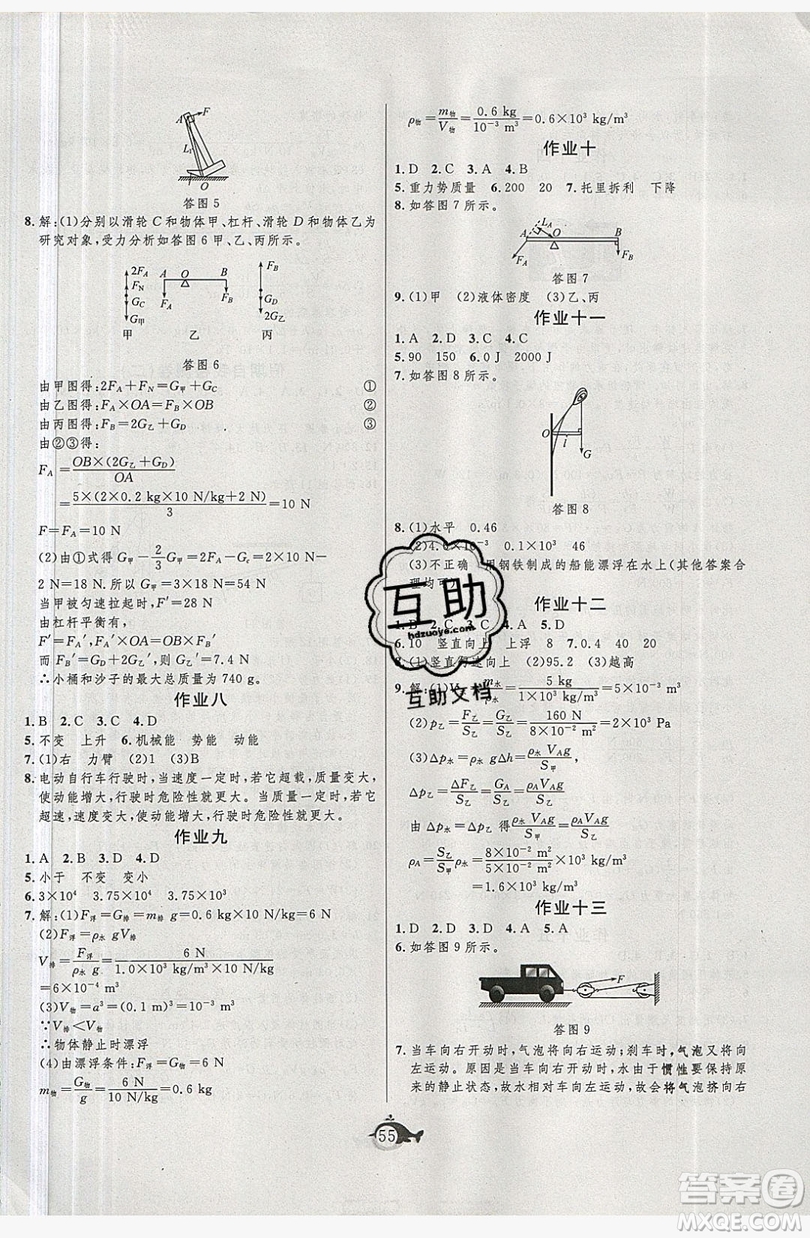 A
F
L₁
O
答图 5
8. 解:(1)分别以滑轮 C 和物体甲、杠杆、滑轮 D 和物体乙为
研究对象,受力分析如答图 6 甲、乙、丙所示。
2F_A
F_N
G_C
G_甲
A O B
F_A F_B
F_B
G_D
2G_乙
甲 乙 丙
答图 6
由甲图得:2F_A+F_N=G_甲+G_C ①
由乙图得:F_A×OA=F_B×OB ②
由丙图得:F_B=2G_乙+G_D ③
由②③得:
F_A=OB×(2G_乙+G_D)/OA
=5×(2×0.2 kg×10 N/kg+2 N)/3=10 N
F=F_A=10 N
(2)由①式得 G_甲-2/3G_甲=2F_A-G_c=2×10 N-
2 N=18 N,所以 G_甲=3×18 N=54 N
当甲被匀速拉起时,有
由杠杆平衡有,
F'=F_A',F_A'×OA=F_B'×OB
而 F_B'=G_D+2G_乙'
∴小桶和沙子的最大总质量为 740 g。
作业八
1. B 2. C 3. C 4. D
5. 不变 上升 6. 机械能 势能 动能
7. (1)右 力臂 (2)1 (3)B
8. 电动自行车行驶时,当速度一定时,若它超载,质量变大,
使动能增大,行驶时危险性更大。当质量一定时,若它
超速,速度变大,使动能增大,行驶时危险性更大。
作业九
1. A 2. B 3. D 4. D
5. 小于 不变 变小
6. 3×10⁴ 3.75×10⁴ 3.75×10⁴
7. 解:(1)F_浮=G_排=m_排 g=0.6 kg×10 N/kg=6 N
(2)F_浮=ρ_水 gV_排
V_排=F_浮/ρ_水g=6 N/1.0×10³ kg/m³×10 N/kg
=6×10⁻⁴ m³
(3)V_物=a³=(0.1 m)³=10⁻³ m³
∵V_排<V_物
∴物体静止时漂浮
(4)由漂浮条件:F_浮=G_物=6 N
m_物=G_物/g=6 N/10 N/kg=0.6 kg
ρ_物=m_物/V_物=0.6 kg/10⁻³ m³=0.6×10³ kg/m³
作业十
1. D 2. C 3. A 4. B
5. 重力势质量 6. 200 20 7. 托里拆利 下降
8. 如答图 7 所示。
A L_A O B
F_A F_B
答图 7
9. (1)甲 (2)液体密度 (3)乙、丙
作业十一
1. A 2. D 3. C 4. C
5. 90 150 6. 0 J 2000 J
7. 如答图 8 所示。
O
l
G
答图 8
8. (1)水平 0.46
(2)4.6×10⁻³ 0.1×10³ 46
(3)不正确 用钢铁制成的船能漂浮在水上(其他答案合
理均可)
作业十二
1. B 2. C 3. C 4. A 5. D
6. 10 竖直向上 上浮 8 7. 0.4 40 20
8. (1)竖直 向上 (2)95.2 (3)越高
9. 解:(1)V_水=m_水/ρ_水=5 kg/1×10³ kg/m³=5×10⁻³ m³
(2)p_乙=F_乙/S_乙=G_乙/S_乙=160 N/8×10⁻² m²=2×10³ Pa
(3)Δp_水=ρ_水 gΔh=ρ_水 V_Ag/S_甲
Δp_乙=ΔF_乙/S_乙=G_A/S_乙=ρ_A V_Ag/S_乙
由 Δp_水=Δp_乙 得 ρ_水 V_Ag/S_甲=ρ_A V_Ag/S_乙
ρ_A=S_乙/S_甲 ρ_水=8×10⁻² m²/5×10⁻² m²×1×10³ kg/m³
=1.6×10³ kg/m³
作业十三
1. D 2. D 3. C 4. A 5. A
6. 如答图 9 所示。
F
答图 9
7. 当车向右开动时,气泡将向右运动;刹车时,气泡又将向
左运动。原因是当车向右开动时,水由于惯性要保持原
来的静止状态,故水相对车向左运动,故会将气泡挤向右
55
互助
hdzuoye.com
互助文档
答案圈
MXQE.COM